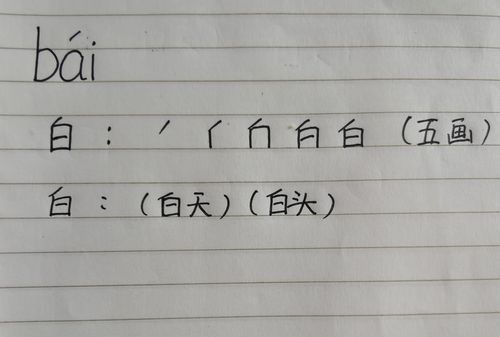 bái
白：丿 亻 白 白 白（五画）
白：（白天）（白头）